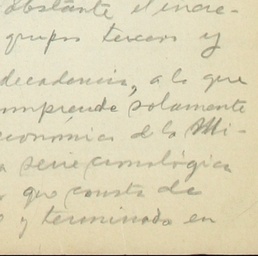 obstante el incre-
grupos terceros y
decadencia, a la que
comprende solamente
económica de la Mi-
a serie cronológica
que consta de
y terminada en